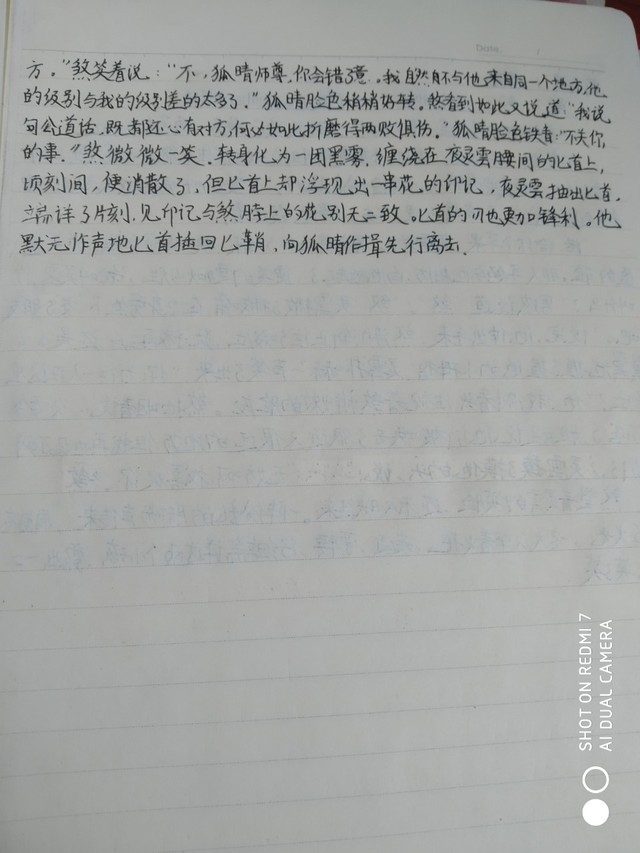 Date
方。”煞笑着说：“不，狐晴师尊，你会错了意。我自然不与他来自同一个地方，他
的级别与我的级别差的太多了。”狐晴脸色稍稍好转。煞看到如此又说道：“我说
句公道话，既都还心有对方，何必如此折磨得两败俱伤。”狐晴脸色铁青：“不关你
的事。”煞微微一笑，转身化为一团黑雾，缠绕在夜灵雲腰间的匕首上，
顷刻间，便消散了，但匕首上却浮现出一串花的印记，夜灵雲抽出匕首，
端详了片刻，见印记与煞脖上的花别无二致。匕首的刃也更加锋利。他
默不作声地匕首插回匕鞘，向狐晴作揖先行离去。
SHOT ON REDMI 7
AI DUAL CAMERA